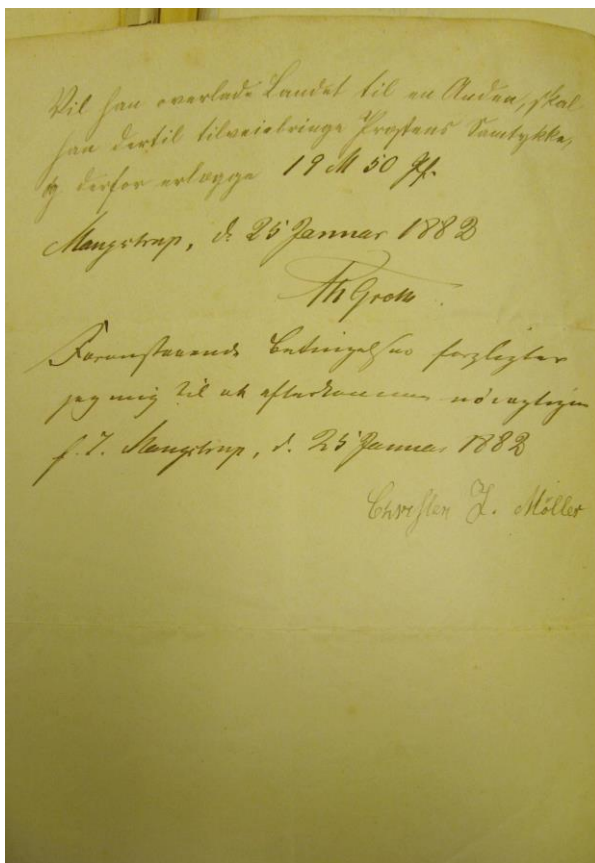 Vil han overlade Landet til en Anden, skal
han dertil tilveiebringe Præstens Samtykke,
og derfor erlægge 19 M 50 Pf.
Maugstrup, d. 25 Januar 1882
Foranstaaende Betingelser forpligter
jeg mig til at efterkomme nöiagtigen
Maugstrup, d. 25 Januar 1882
Christen J. Möller